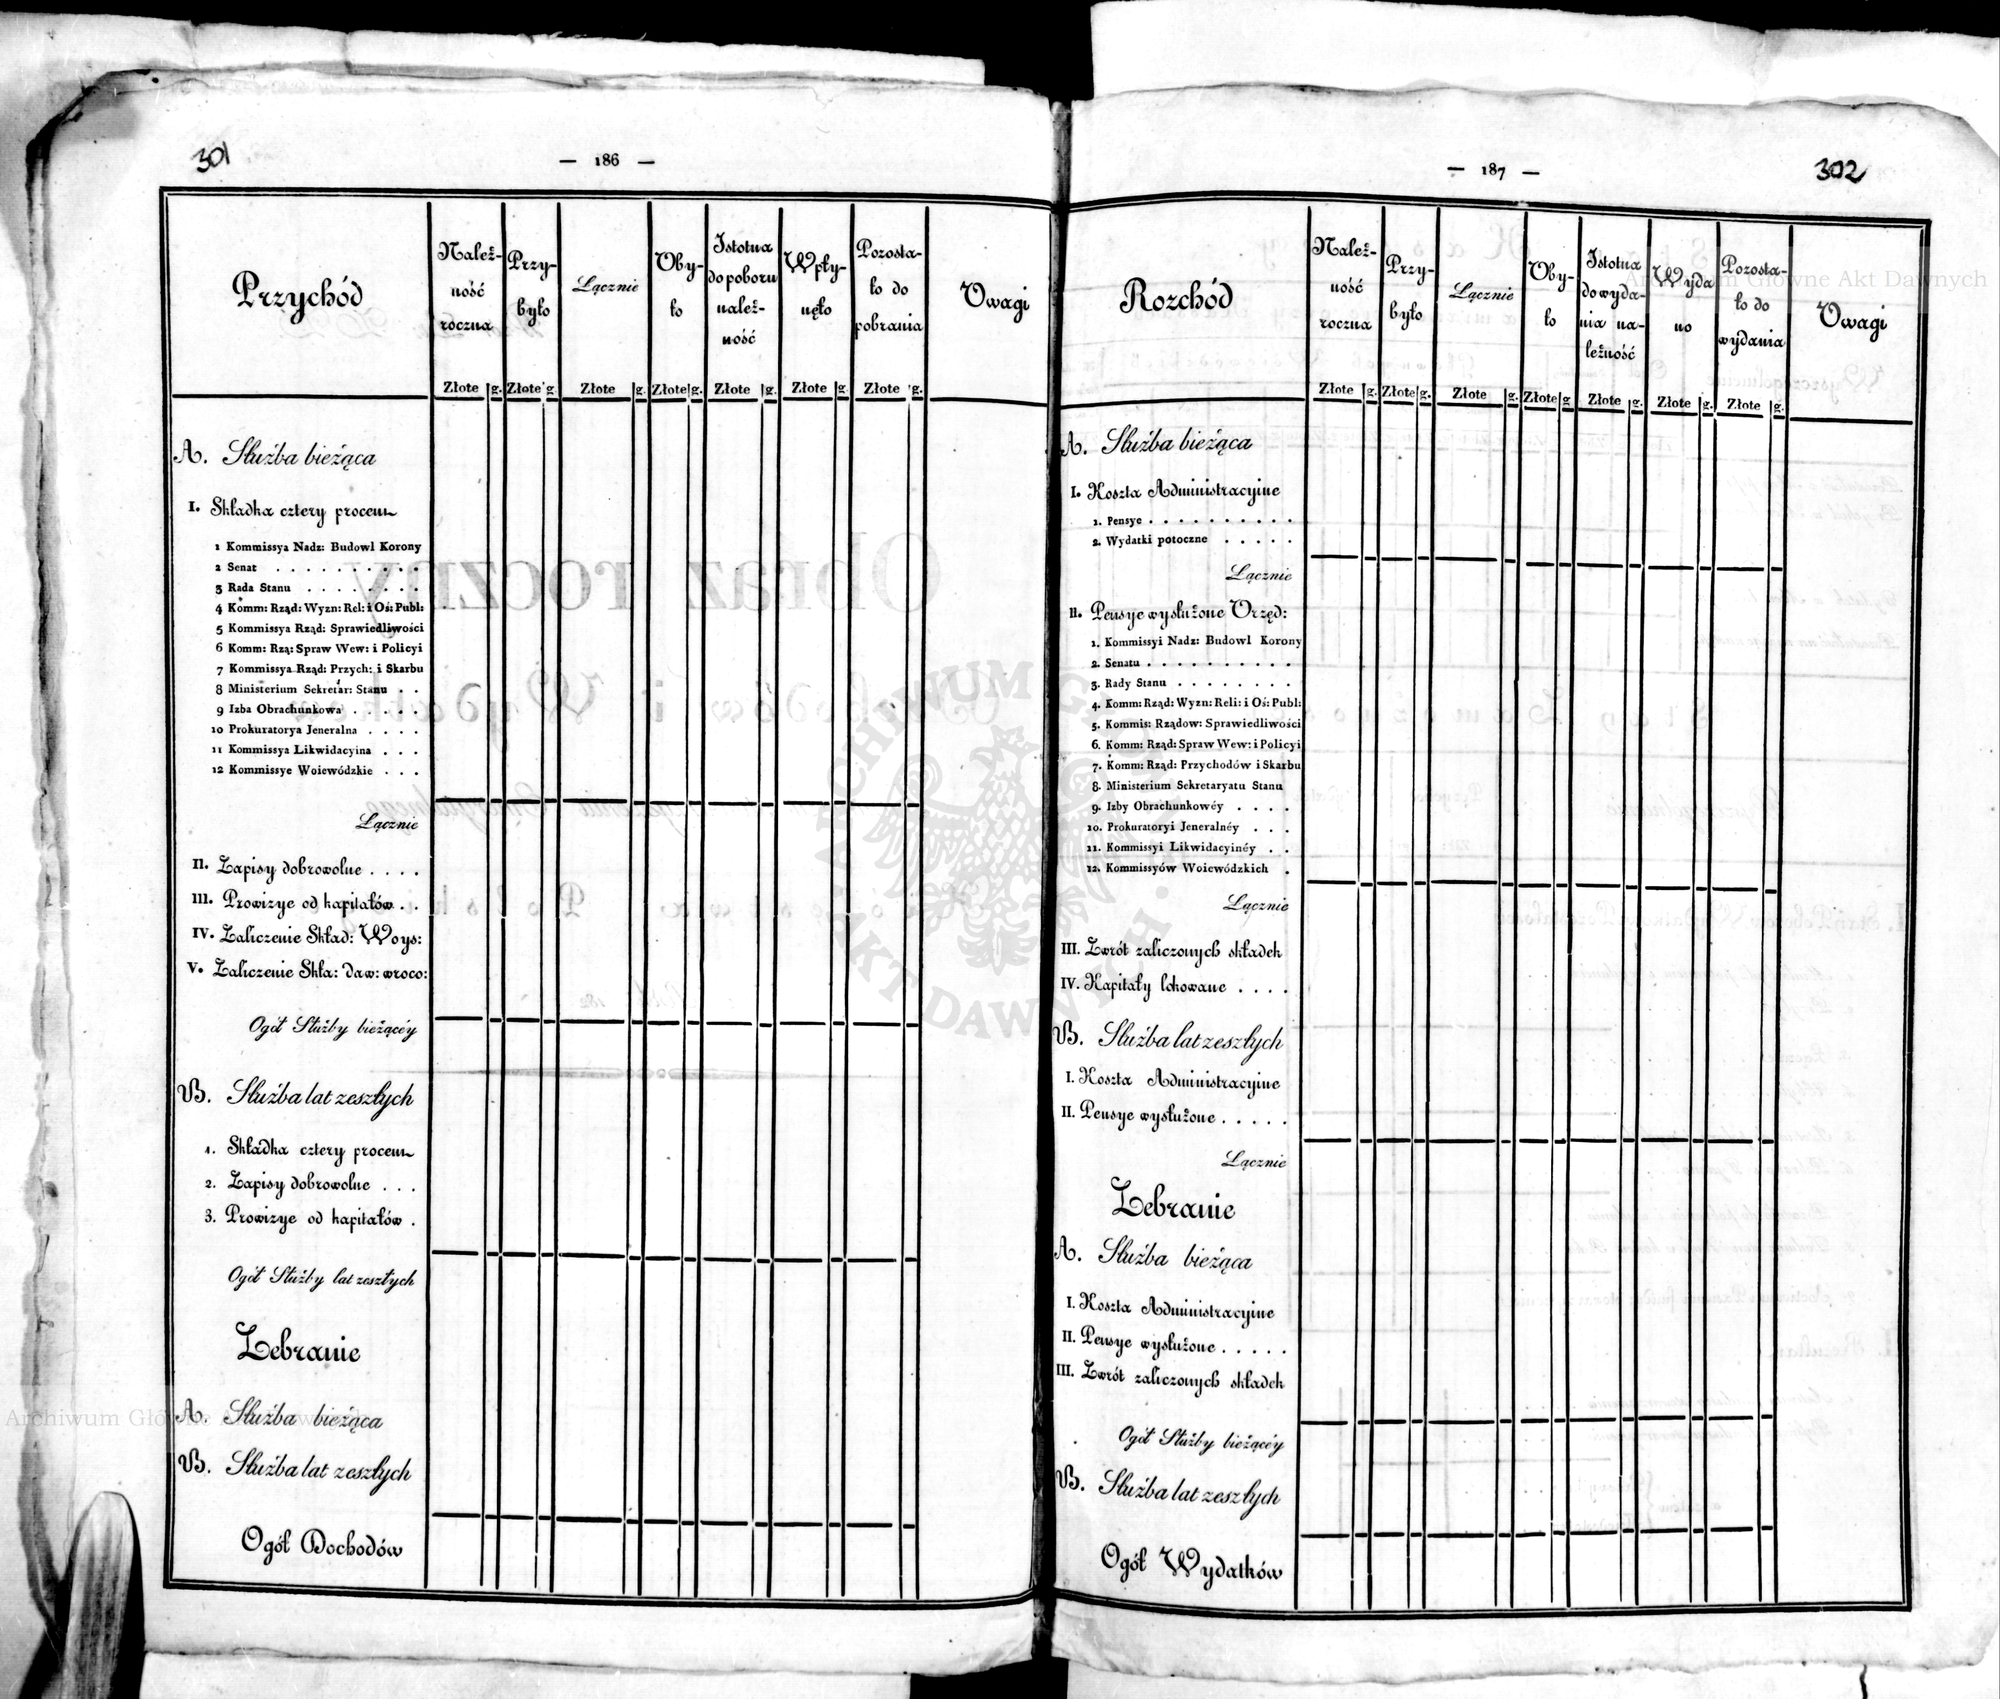 301
— 186 —
Przychód
Należ-
ność
roczna
Przy-
było
Łącznie
Oby-
ło
Istotna
do poboru
należ-
ność
Wpły-
nęło
Pozosta-
ło do
pobrania
Uwagi
Złote g. Złote g. Złote g. Złote g. Złote g. Złote g. Złote g.
A. Służba bieżąca
I. Składka cztery procent
1 Kommissya Nadz: Budowl Korony
2 Senat . . . . . . . . . .
3 Rada Stanu . . . . . . . .
4 Komm: Rząd: Wyzn: Rel: i Oś: Publ:
5 Kommissya Rząd: Sprawiedliwości
6 Komm: Rzą: Spraw Wew: i Policyi
7 Kommissya Rząd: Przych: i Skarbu
8 Ministerium Sekretar: Stanu . .
9 Izba Obrachunkowa . . . . .
10 Prokuratorya Jeneralna . . . .
11 Kommissya Likwidacyina . . .
12 Kommissye Woiewódzkie . . .
Łącznie
II. Zapisy dobrowolne . . . .
III. Prowizye od kapitałów . .
IV. Zaliczenie Skład: Woys:
V. Zaliczenie Skła: daw: wroco:
Ogół Służby bieżącéy
B. Służba lat zeszłych
1. Składka cztery procent
2. Zapisy dobrowolne . . .
3. Prowizye od kapitałów .
Ogół Służby lat zeszłych
Zebranie
A. Służba bieżąca
B. Służba lat zeszłych
Ogół Dochodów
— 187 —
302
Rozchód
Należ-
ność
roczna
Przy-
było
Łącznie
Oby-
ło
Istotna
do wyda-
nia na-
leżność
Wyda
no
Pozosta-
ło do
wydania
Uwagi
Złote g. Złote g. Złote g. Złote g Złote g. Złote g. Złote g.
A. Służba bieżąca
I. Koszta Administracyine
1. Pensye . . . . . . . . . .
2. Wydatki potoczne . . . . .
Łącznie
II. Pensye wysłużone Urzęd:
1. Kommissyi Nadz: Budowl Korony
2. Senatu . . . . . . . . . .
3. Rady Stanu . . . . . . . .
4. Komm: Rząd: Wyzn: Reli: i Oś: Publ:
5. Kommis: Rządow: Sprawiedliwości
6. Komm: Rząd: Spraw Wew: i Policyi
7. Komm: Rząd: Przychodów i Skarbu
8. Ministerium Sekretaryatu Stanu
9. Izby Obrachunkowéy . . . .
10. Prokuratoryi Jeneralnéy . . .
11. Kommissyi Likwidacyinéy . .
12. Kommissyów Woiewódzkich .
Łącznie
III. Zwrót zaliczonych składek
IV. Kapitały lokowane . . . .
B. Służba lat zeszłych
I. Koszta Administracyine
II. Pensye wysłużone . . . . .
Łącznie
Zebranie
A. Służba bieżąca
I. Koszta Administracyine
II. Pensye wysłużone . . . . .
III. Zwrót zaliczonych składek
Ogół Służby bieżącéy
B. Służba lat zeszłych
Ogół Wydatków
Archiwum Główne Akt Dawnych
ARCHIWUM GŁÓWNE AKT DAWNYCH